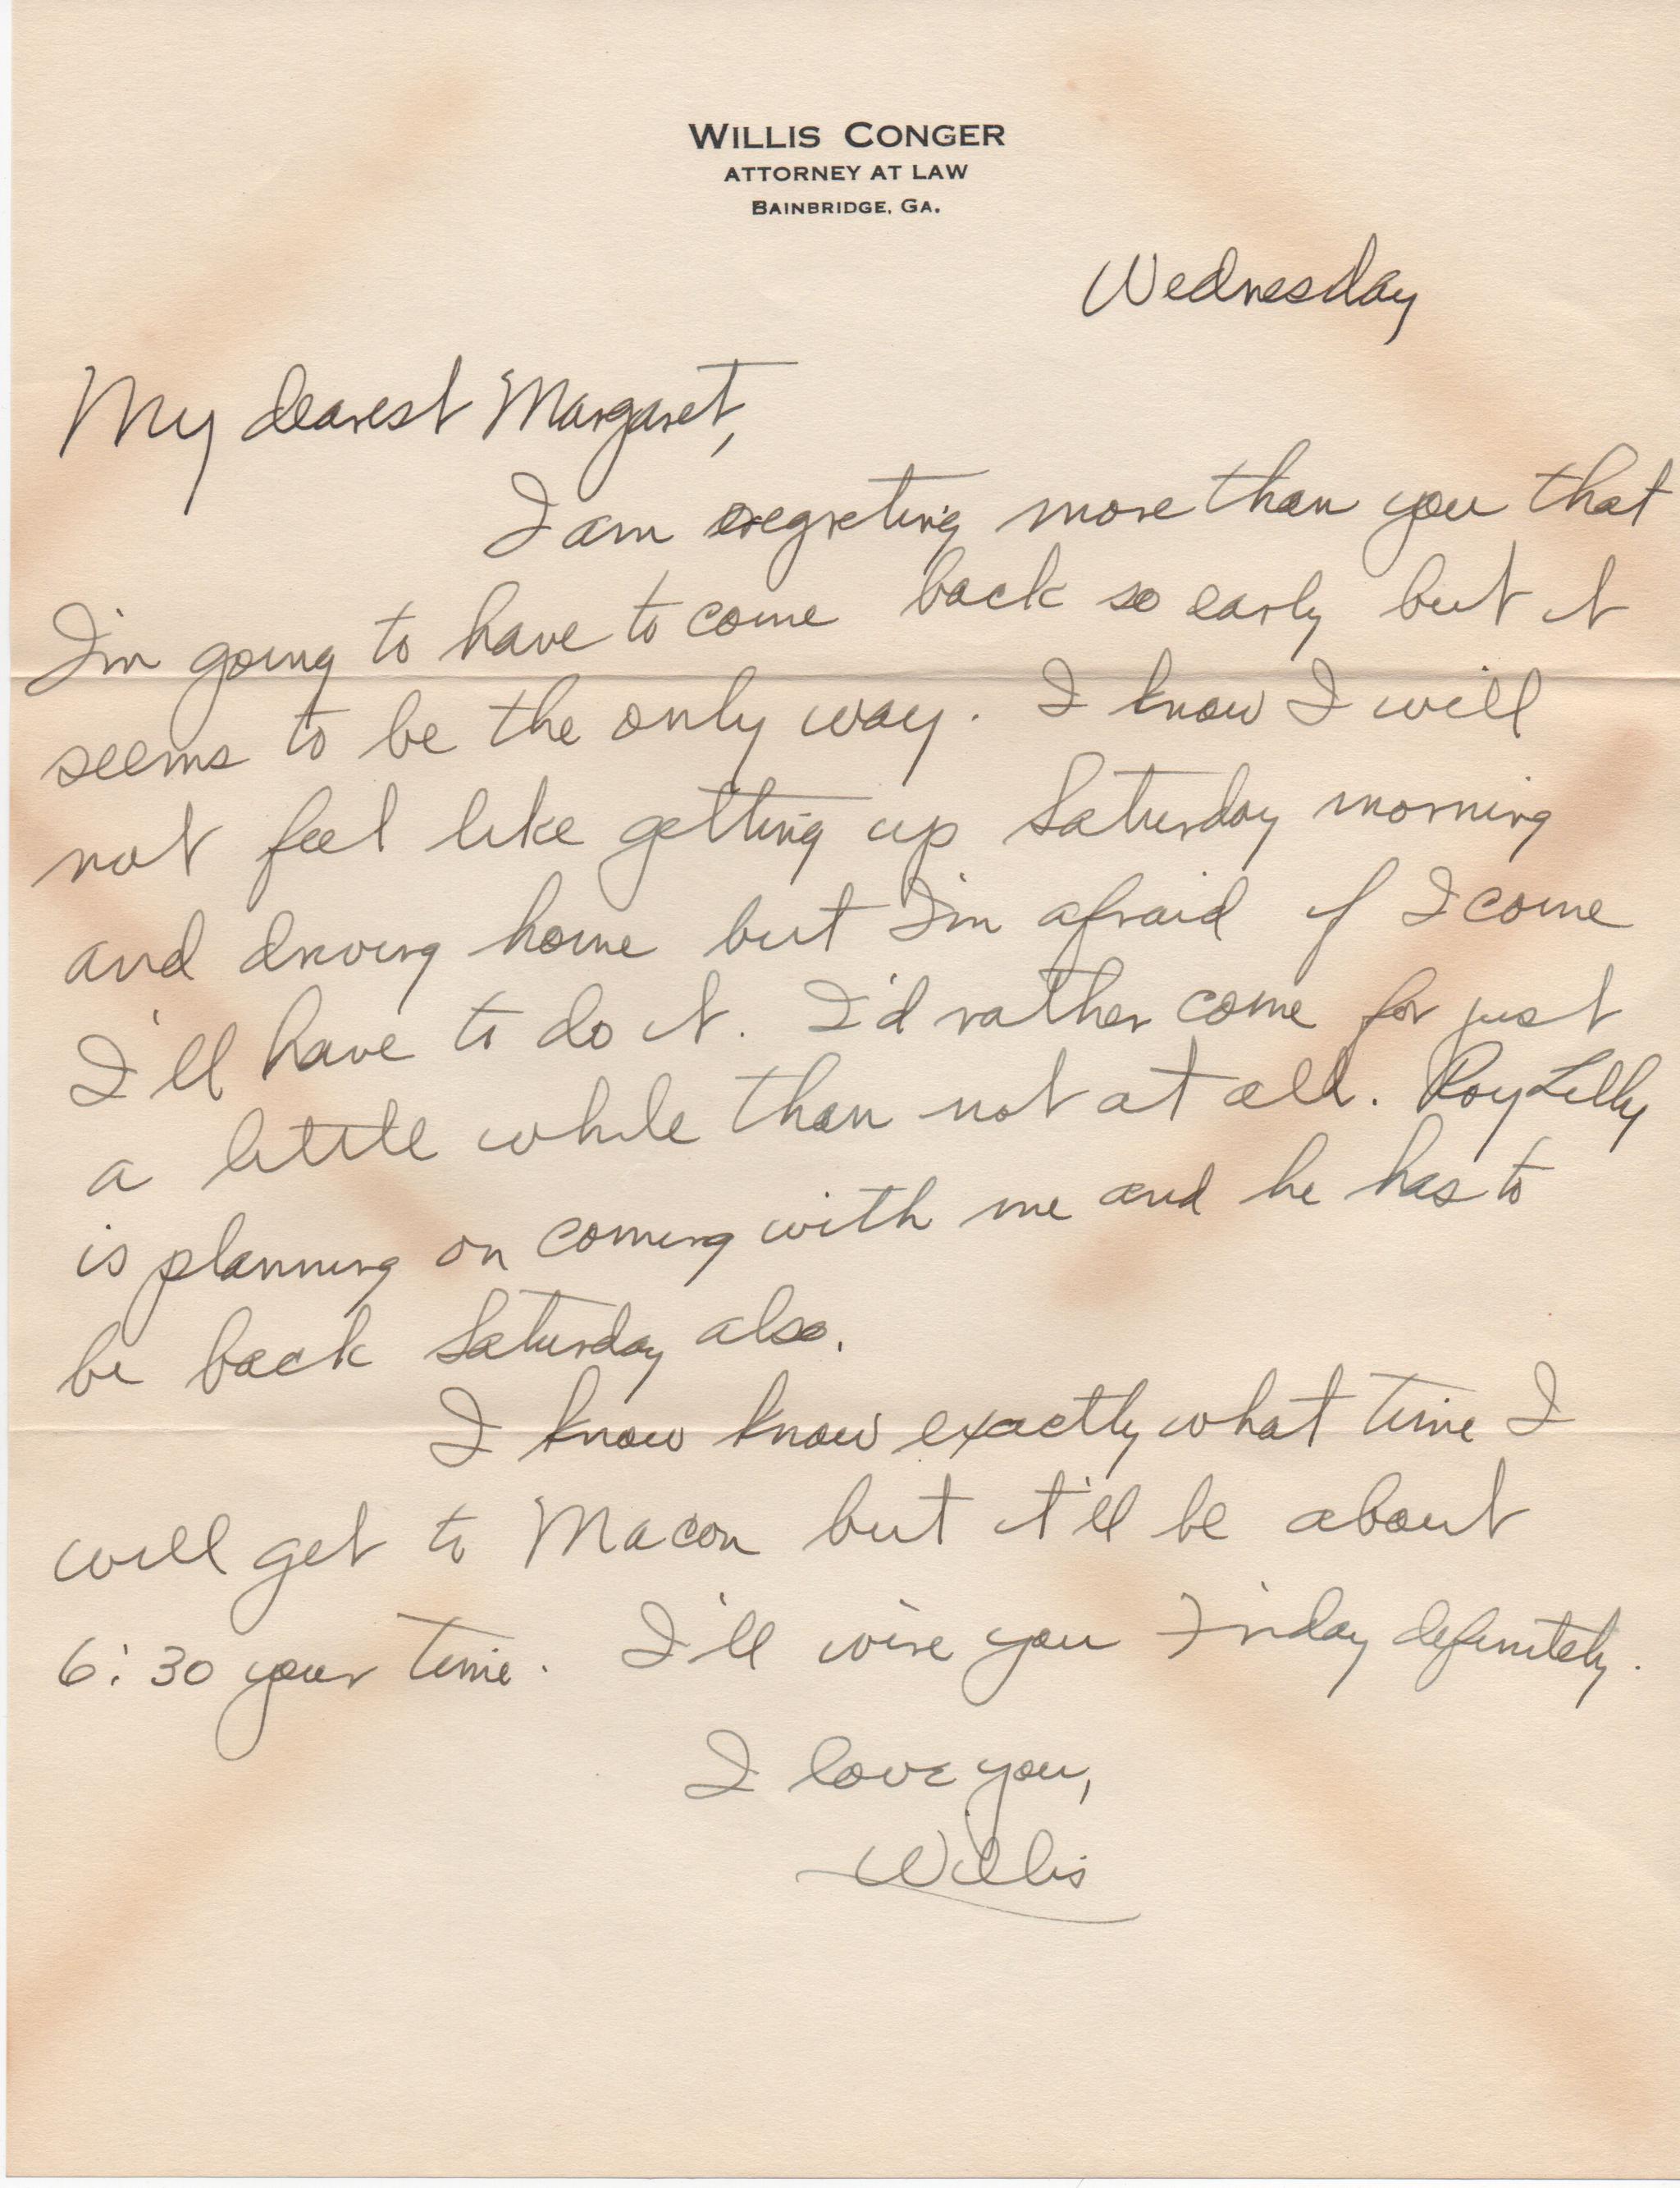 WILLIS CONGER
ATTORNEY AT LAW
BAINBRIDGE, GA.
Wednesday
My dearest Margaret,
I am regreting more than you that
I'm going to have to come back so early but it
seems to be the only way. I know I will
not feel like getting up Saturday morning
and driving home but I'm afraid if I come
I'll have to do it. I'd rather come for just
a little while than not at all. Roy Lilly
is planning on coming with me and he has to
be back Saturday also.
I know know exactly what time I
will get to Macon but it'll be about
6:30 your time. I'll wire you Friday definitely.
I love you,
Willis